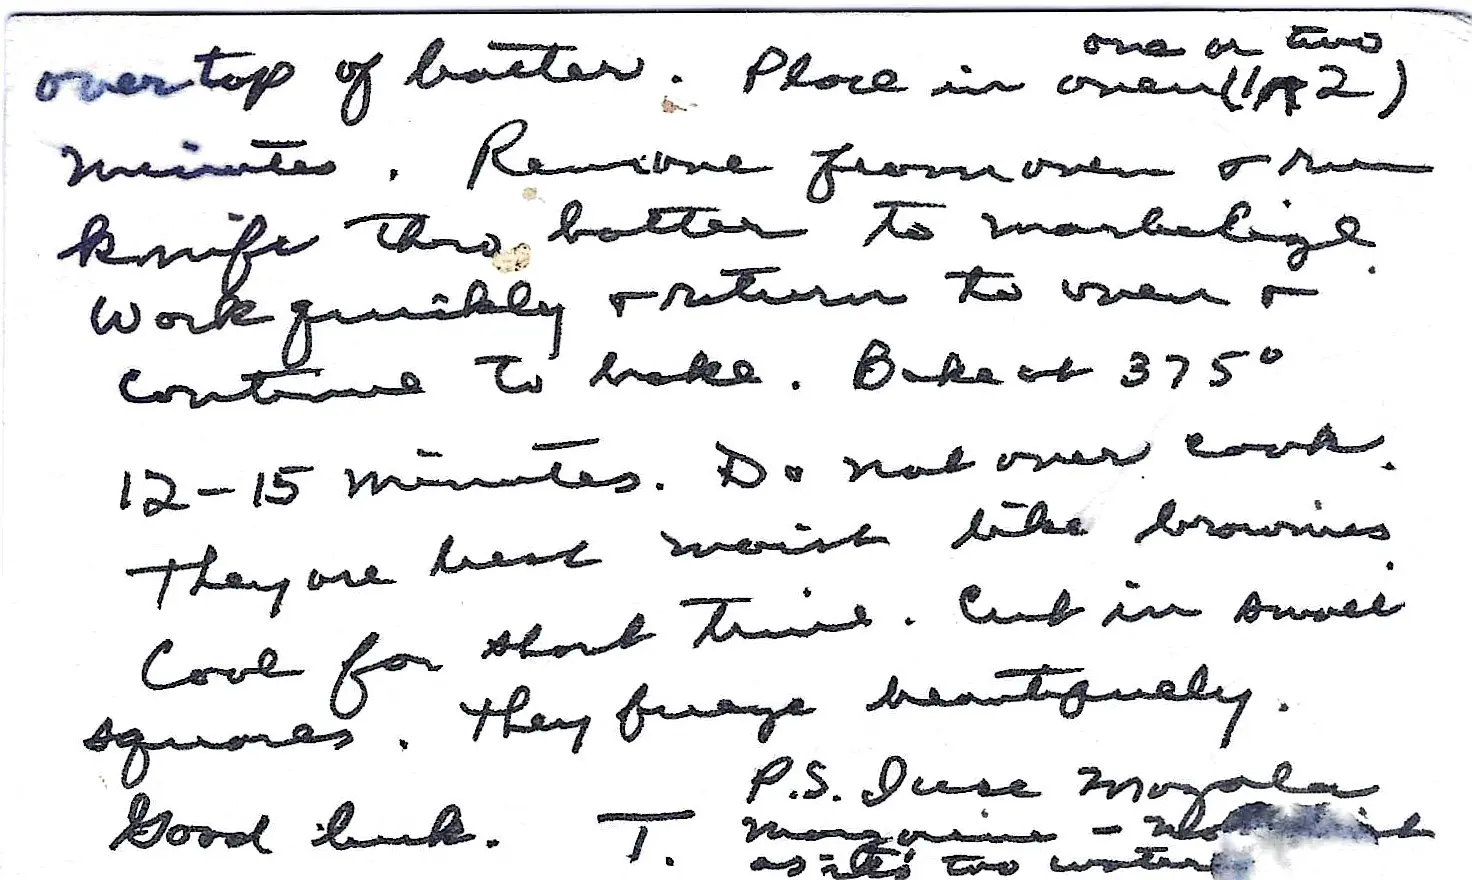 one or two
over top of batter. Place in oven (1 or 2)
minutes. Remove from oven & run
knife thro batter to marbelize.
Work quickly & return to oven &
continue to bake. Bake at 375°
12-15 minutes. Do not over cook.
They are best moist like brownies.
Cool for short time. Cut in small
squares. They freeze beautifully.
Good luck. T.
P.S. I use Mazola
margarine -
as it's too watery